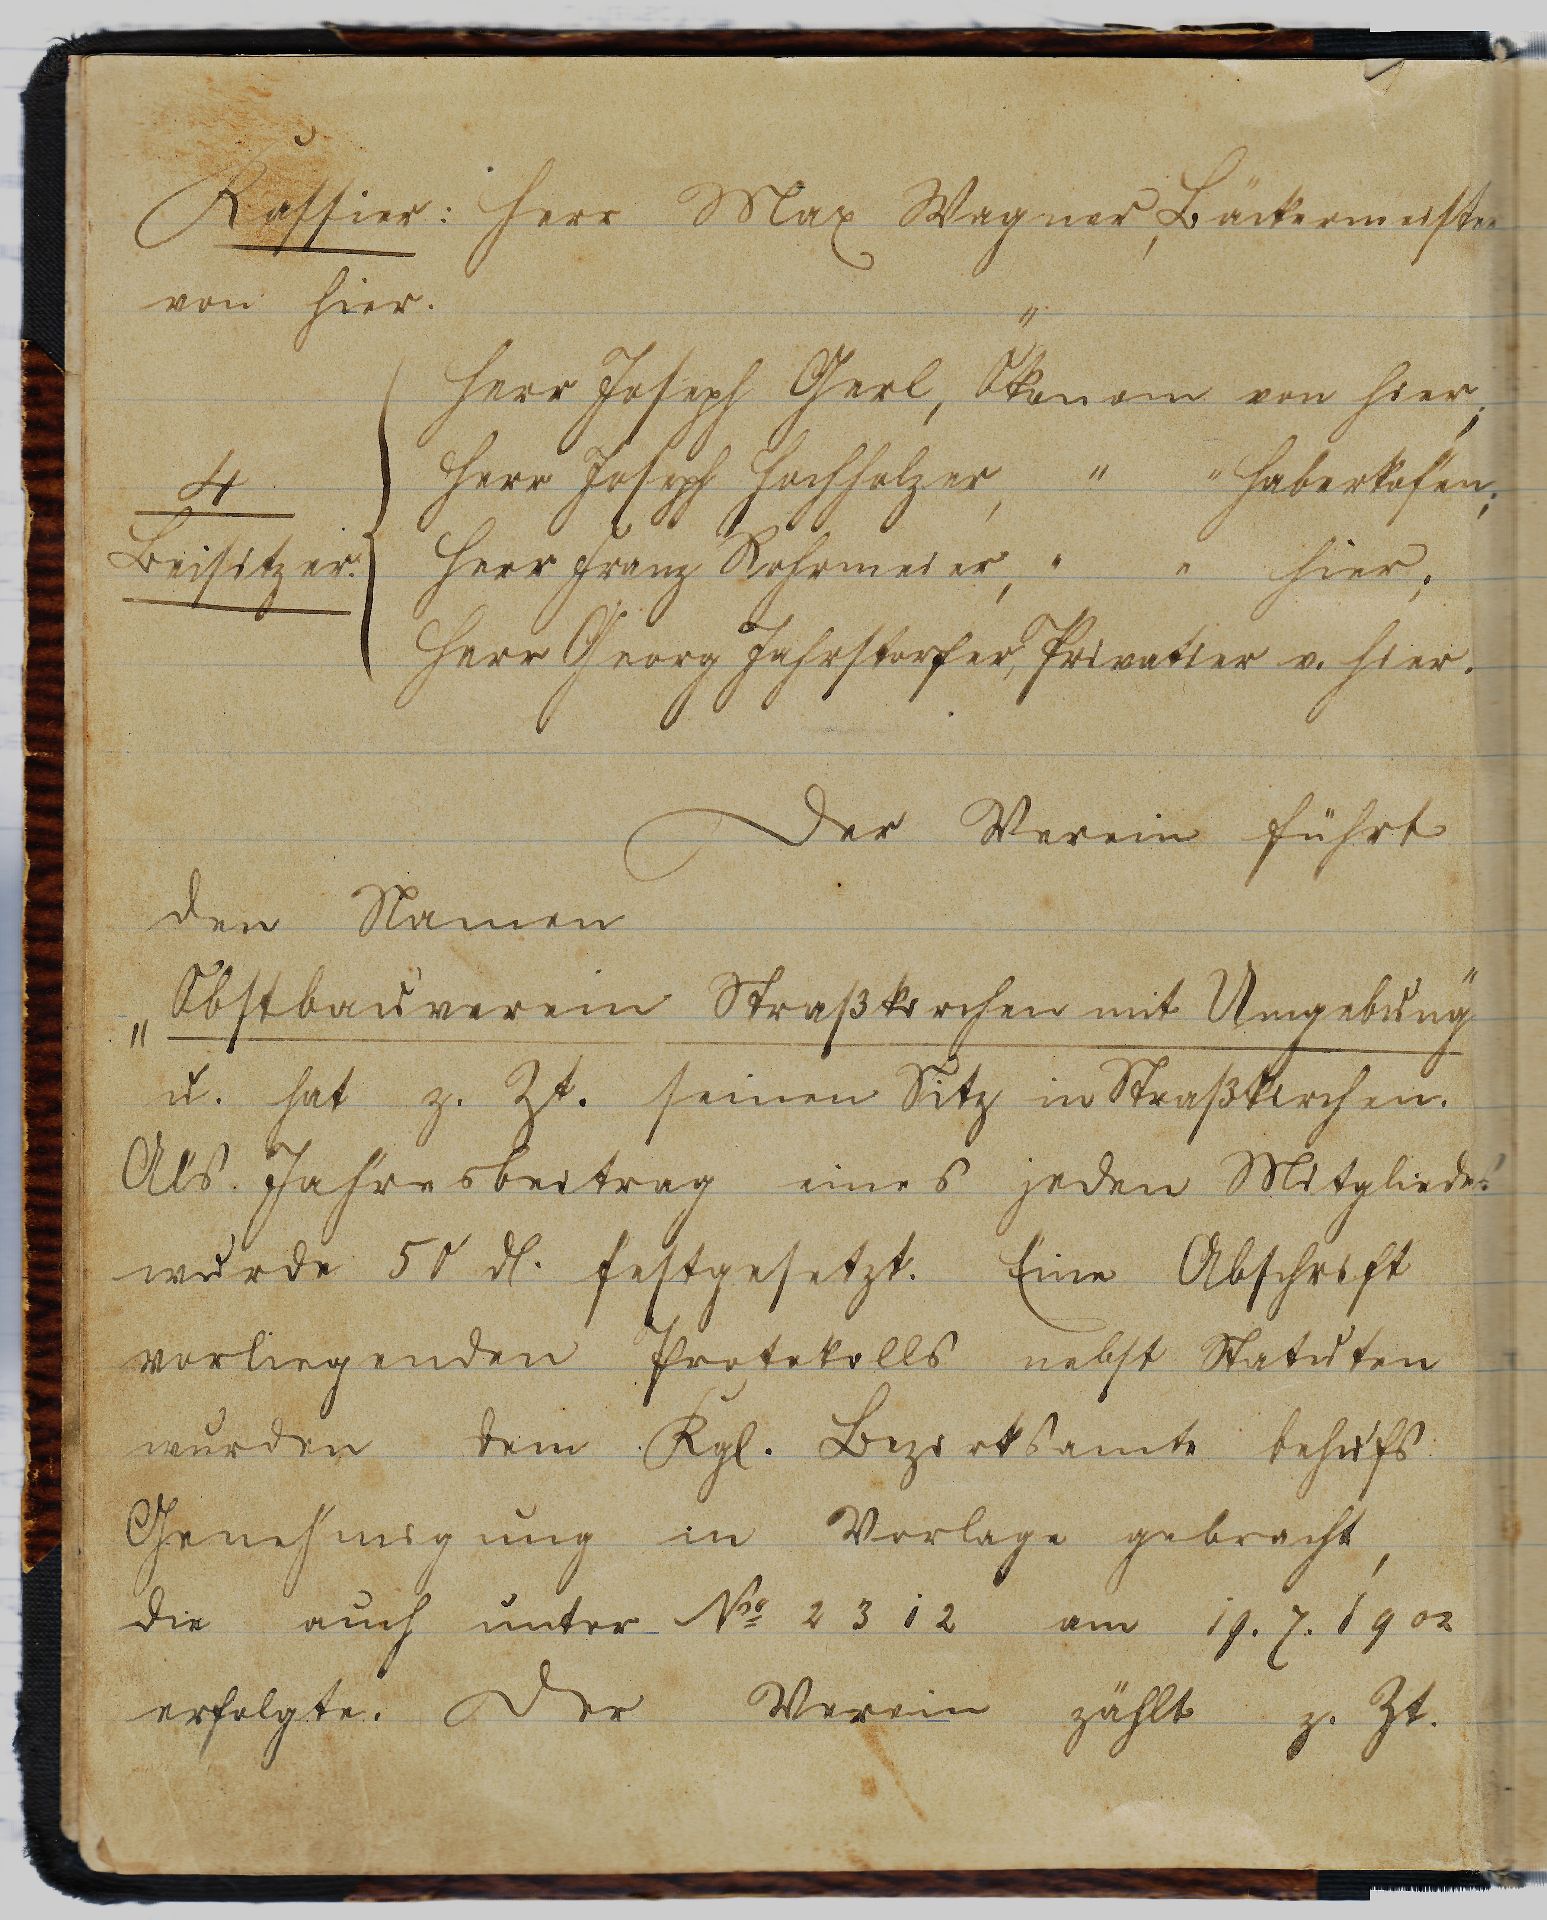 Kassier: Herr Max Wagner, Bäckermeister
von hier.
Herr Joseph Gerl, Ökonom von hier,
4 Herr Joseph Hochholzer, " " Haberkofen;
Beisitzer. Herr Franz Rohrmeier, " " hier;
Herr Georg Jahrstorfer, Privatier v. hier.
Der Verein führt
den Namen
„Obstbauverein Straßkirchen mit Umgebung"
u. hat z. Zt. seinen Sitz in Straßkirchen.
Als Jahresbeitrag eines jeden Mitgliedes
wurde 50 dl. festgesetzt. Eine Abschrift
vorliegenden Protokolls nebst Statuten
wurden dem Kgl. Bezirksamte behufs
Genehmigung in Vorlage gebracht,
die auch unter No 2312 am 19. 7. 1902
erfolgte. Der Verein zählt z. Zt.